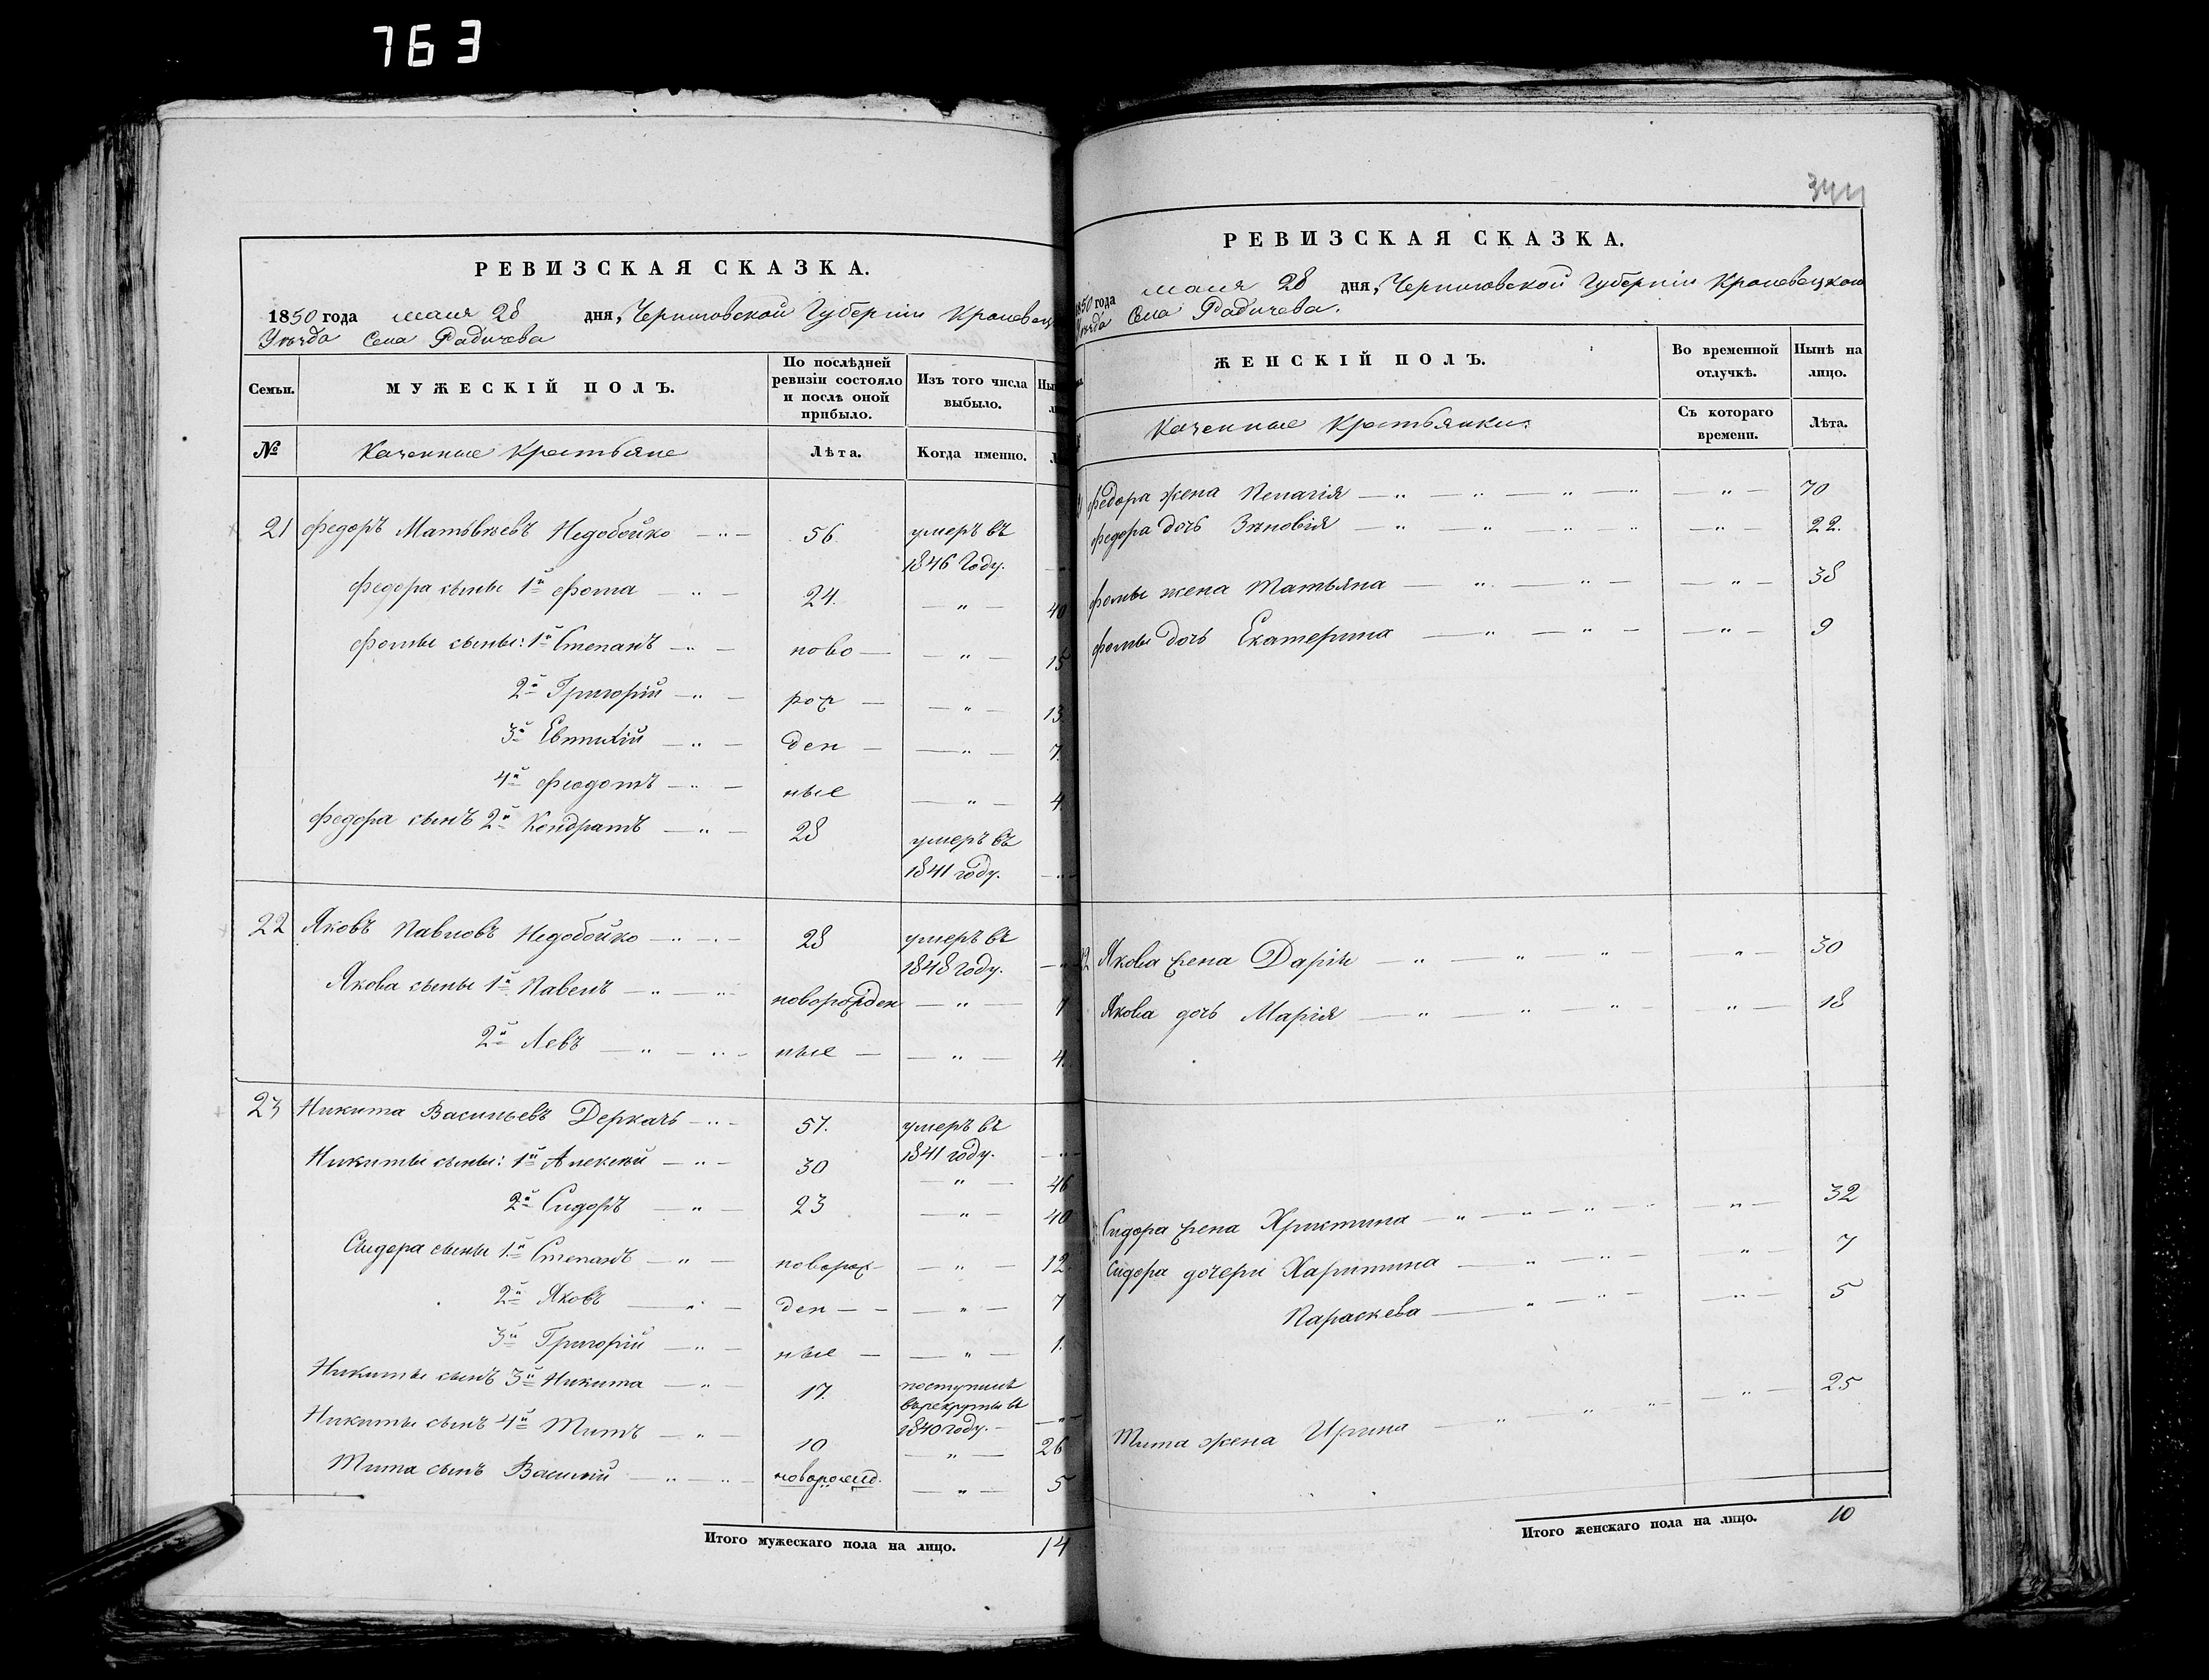 763
РЕВИЗСКАЯ СКАЗКА.
1850 года мая 28 дня, Черниговской Губерніи Кролевец
Уѣзда Села Радичева
Семьи.
МУЖЕСКІЙ ПОЛЪ.
По послѣдней ревизіи состояло и послѣ оной прибыло.
Изъ того числа выбыло.
№
Казенные Крестьяне
Лѣта.
Когда именно.
21 Федоръ Матвѣевъ Недобойко — „ — 56. умеръ въ
1846 Году. — „
Федора сыны 1й Фома — „ — 24. — „ — 40
Фомы сыны: 1й Степанъ — „ — ново — — „ — 15
2й Григорій — „ — рож — — „ — 13.
3й Евтихій — „ — ден — — „ — 7.
4й Феодотъ — „ — ные — „ — 4.
Федора сынъ 2й Кондратъ — „ — 28 умеръ въ
1841 году. — „ —
22 Яковъ Павловъ Недобойко — „ — 28 умеръ въ
1848 году. — „
Якова сыны 1й Павелъ — „ — „ новорожден — „ — 7
2й Левъ — „ — „ — ные — — „ — 4.
23 Никита Васильевъ Деркачь — „ — 51. умеръ въ
1841 году. — „ —
Никиты сыны: 1й Алексѣй — „ — 30 — „ — 46
2й Сидоръ — „ — 23 — „ — 40
Сидора сыны 1й Степанъ — „ — новорож — „ — 12.
2й Яковъ — „ — ден — — — „ — 7
3й Григорій — „ — ные — — „ — 1.
Никиты сынъ 3й Никита — „ — 17. поступилъ
въ рекруты въ
1840 году. — — „ —
Никиты сынъ 4й Титъ — „ — 10 — „ — 26
Тита сынъ Василій — „ — „ — новорожд. — „ — 5
Итого мужескаго пола на лицо. 14
344
РЕВИЗСКАЯ СКАЗКА.
1850 года мая 28 дня, Черниговской Губерніи Кролевецкого
Уѣзда Села Радичева.
ЖЕНСКІЙ ПОЛЪ.
Во временной отлучкѣ.
Нынѣ на лицо.
Казенные Крестьянки.
Съ котораго времени.
Лѣта.
Федора жена Пелагія — „ — „ — „ — „ — „ — 70
Федора дочь Зѣновія — „ — „ — „ — „ — „ 22.
Фомы жена Татьяна — „ — „ — — „ — 38
Фомы дочь Екатерина — „ — „ — — „ — 9
22 Якова жена Дарія — „ — „ — „ — — „ — 30
Якова дочь Марія — „ — „ — „ — — „ — 18
Сидора жена Христина — „ — „ — „ — — „ — 32
Сидора дочери Харитина — „ — „ — — „ — 7
Параскева — „ — „ — — „ — 5
Тита жена Ирина — „ — „ — „ — „ — 25
Итого женскаго пола на лицо. 10